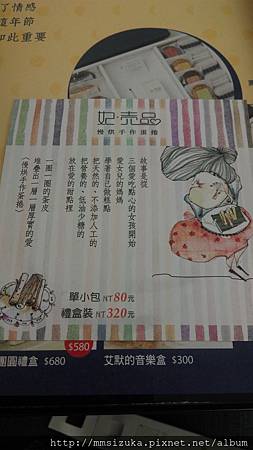 了情感
這年節
如此重要
妃.売品
慢烘手作蛋捲
故事是從
三個愛吃點心的女孩開始
愛女兒的媽媽
學著自己做糕點
把天然的、不添加人工的
把營養的、低油少糖的
放在愛的甜點裡
一圈一圈的蛋皮
堆疊出一層一層厚實的愛
(慢烘手作蛋捲)
單小包 NT 80元
禮盒裝 NT 320元
$580
團圓禮盒 $680
艾默的音樂盒 $300
http://mmsizuka.pixnet.net/album